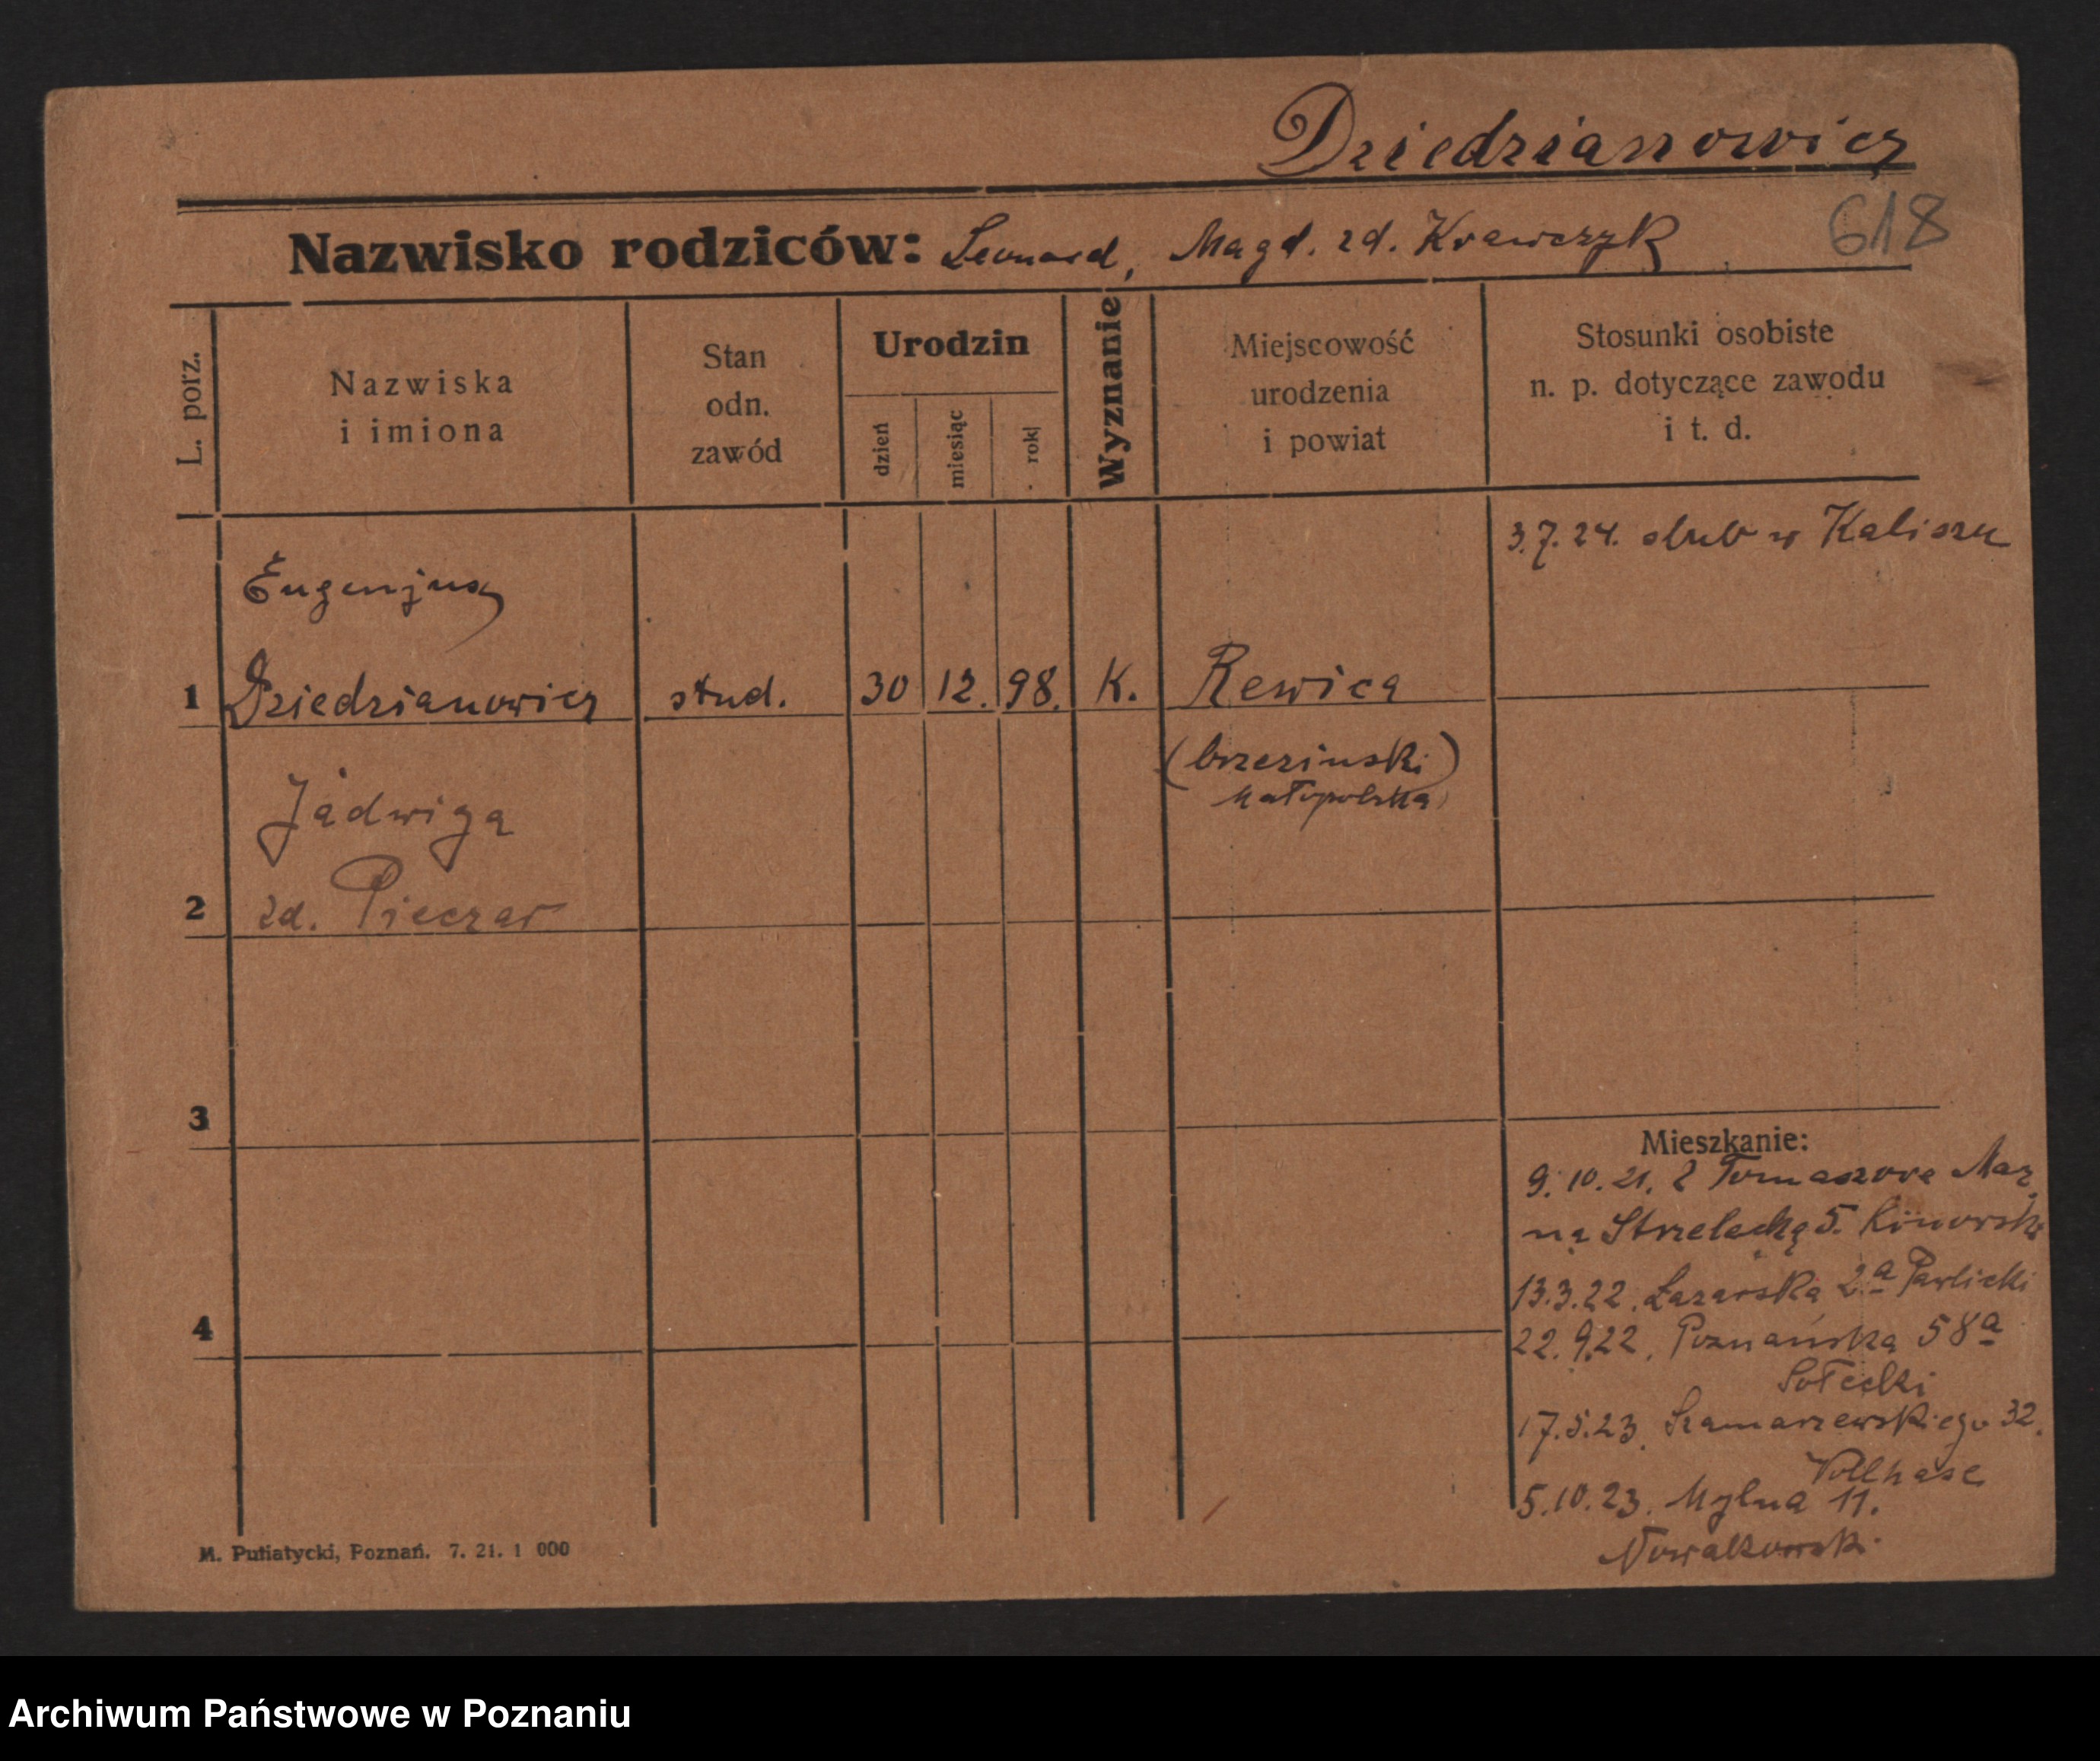 Dziedzianowicz
618
Nazwisko rodziców: Leonard, Magd. zd. Krawczyk
L. porz.
Nazwiska
i imiona
Stan
odn.
zawód
Urodzin
dzień
miesiąc
rok
Wyznanie
Miejscowość
urodzenia
i powiat
Stosunki osobiste
n. p. dotyczące zawodu
i t. d.
3.7.24. slub w Kaliszu
Eugenjusz
1 Dziedzianowicz stud. 30 12. 98. K. Rewica
(brzezinski)
Małopolska
Jadwiga
2 zd. Pieczar
3
Mieszkanie:
9.10.21. z Tomaszowa Maz.
na Strzelecką 5.
13.3.22. Łazarska 2a Pawlicki
4
22.9.22. Poznańska 58a
Sołecki
17.5.23. Szamarzewskiego 32.
Vollhase
5.10.23. Mylna 11.
Nowakowski
M. Putiatycki, Poznań. 7. 21. 1 000
Archiwum Państwowe w Poznaniu